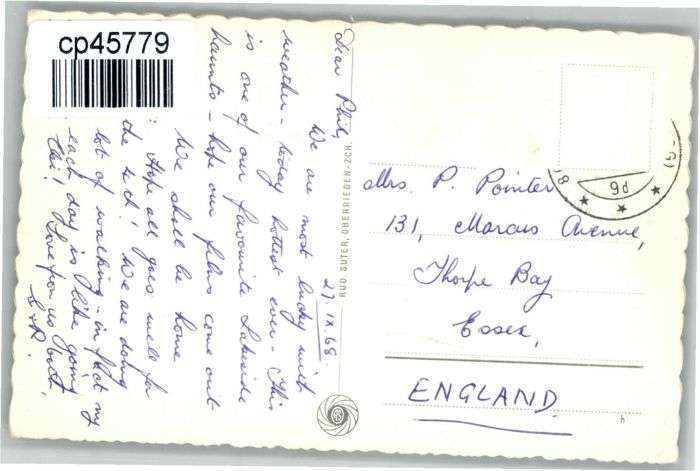 cp45779
27.IX.68
Dear Phil,
We are most lucky with
weather - today hottest ever - This
is one of our favourite Lakeside
haunts - hope our films come out.
We shall be home
: Hope all goes well for
the 4th! We are doing
lot of walking - in fact my
each day is like going
this! Love from us both,
& R.
RUD SUTER, OBERRIEDEN-ZCH.
Mrs. P. Pointer
131, Marcus Avenue,
Thorpe Bay
Essex,
ENGLAND
4